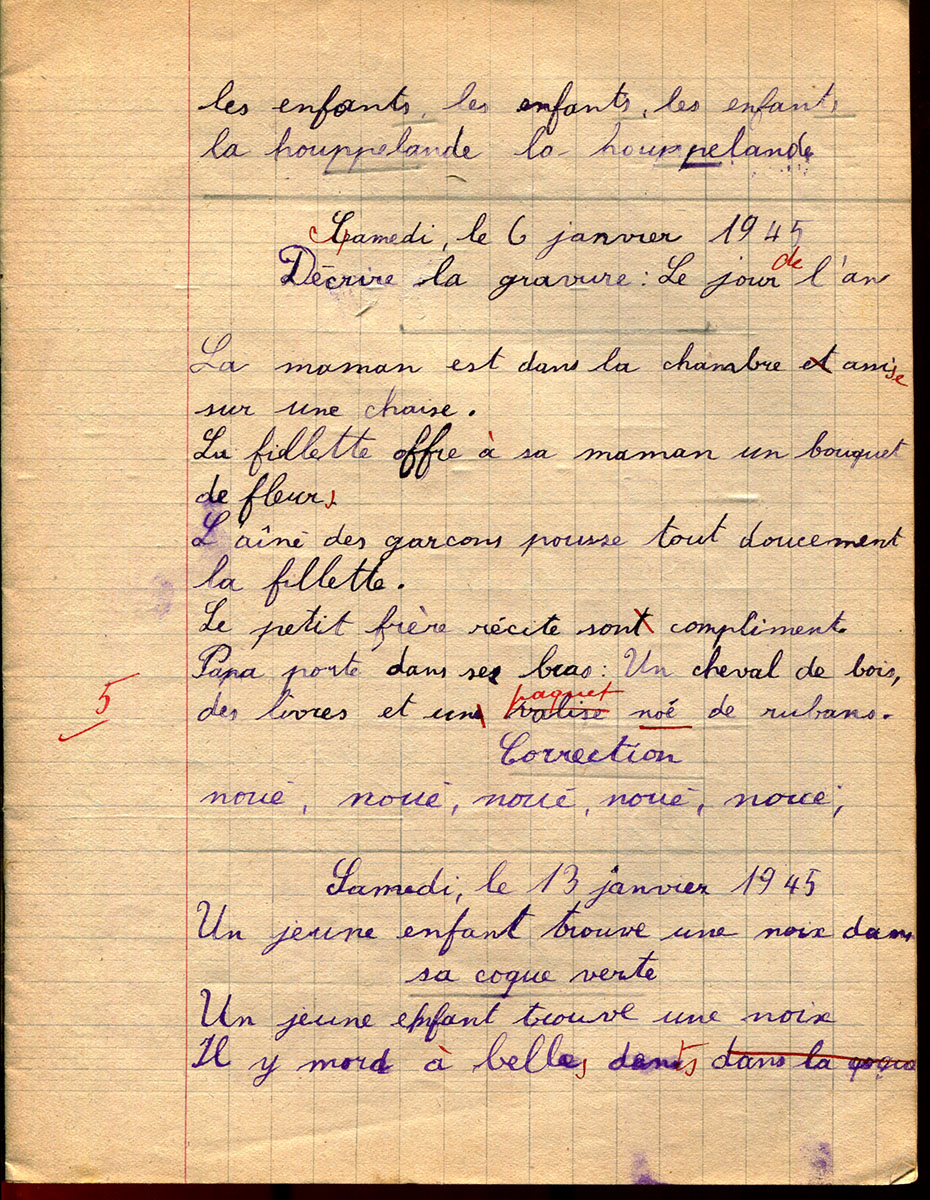 les enfants, les enfants, les enfants
la houppelande la houppelande
Samedi, le 6 janvier 1945
Décrire la gravure : Le jour de l'an
La maman est dans la chambre et assise
sur une chaise.
La fillette offre à sa maman un bouquet
de fleurs
L'aîné des garçons pousse tout doucement
la fillette.
Le petit frère récite sont compliment.
Papa porte dans ses bras : Un cheval de bois,
5
paquet
des livres et une valise noé de rubans.
Correction
noué, noué, noué, noué, noué,
Samedi, le 13 janvier 1945
Un jeune enfant trouve une noix dans
sa coque verte
Un jeune enfant trouve une noix
Il y mord à belles dents dans la coque